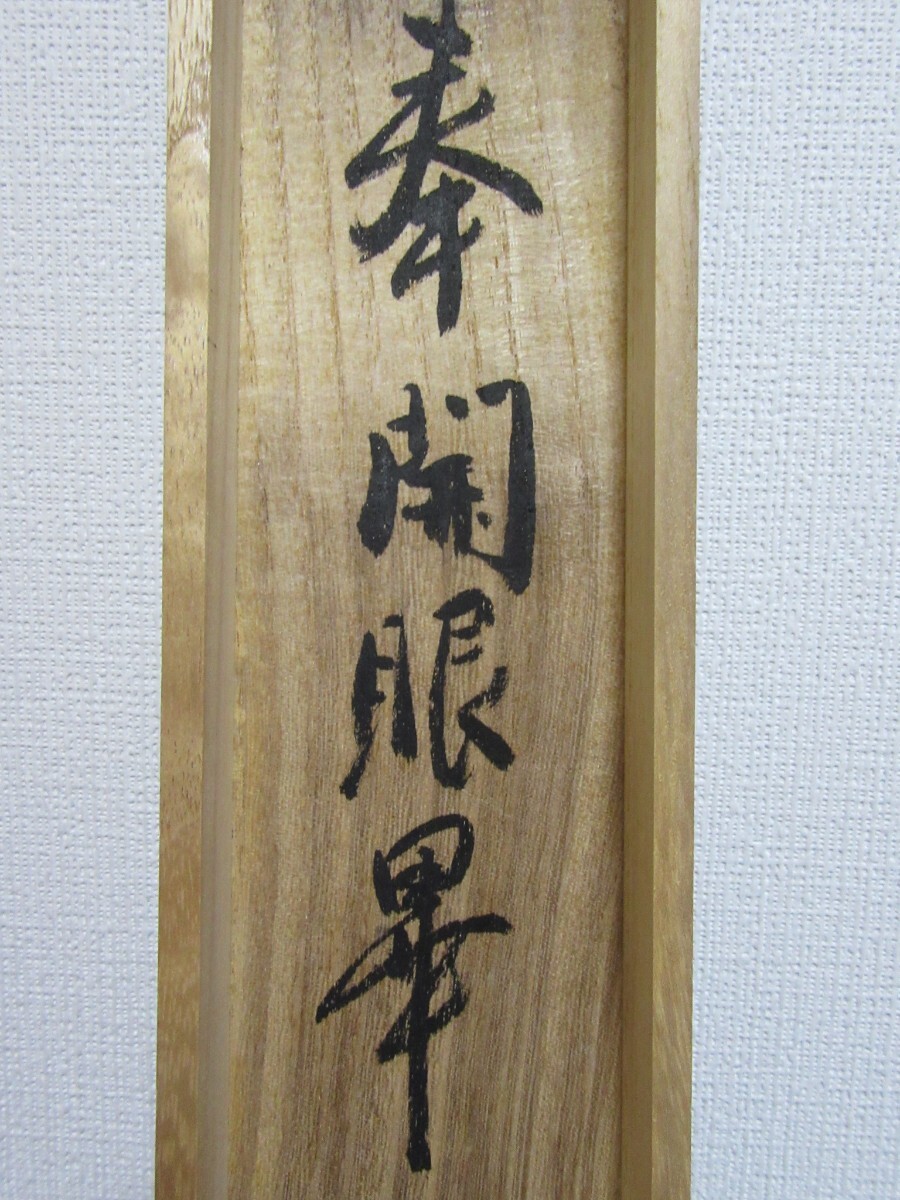 奉開眼畢